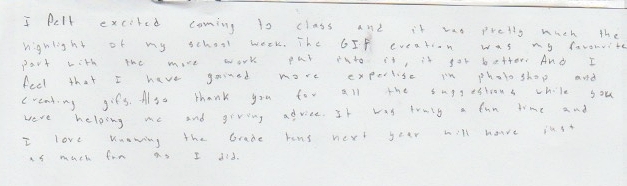 I felt excited coming to class and it was pretty much the
highlight of my school week. The GIF creation was my favourite
part with the more work put into it, it got better. And I
feel that I have gained more expertise in photoshop and
creating gifs. Also thank you for all the suggestions while you
were helping me and giving advice. It was truly a fun time and
I love knowing the Grade tens next year will have just
as much fun as I did.